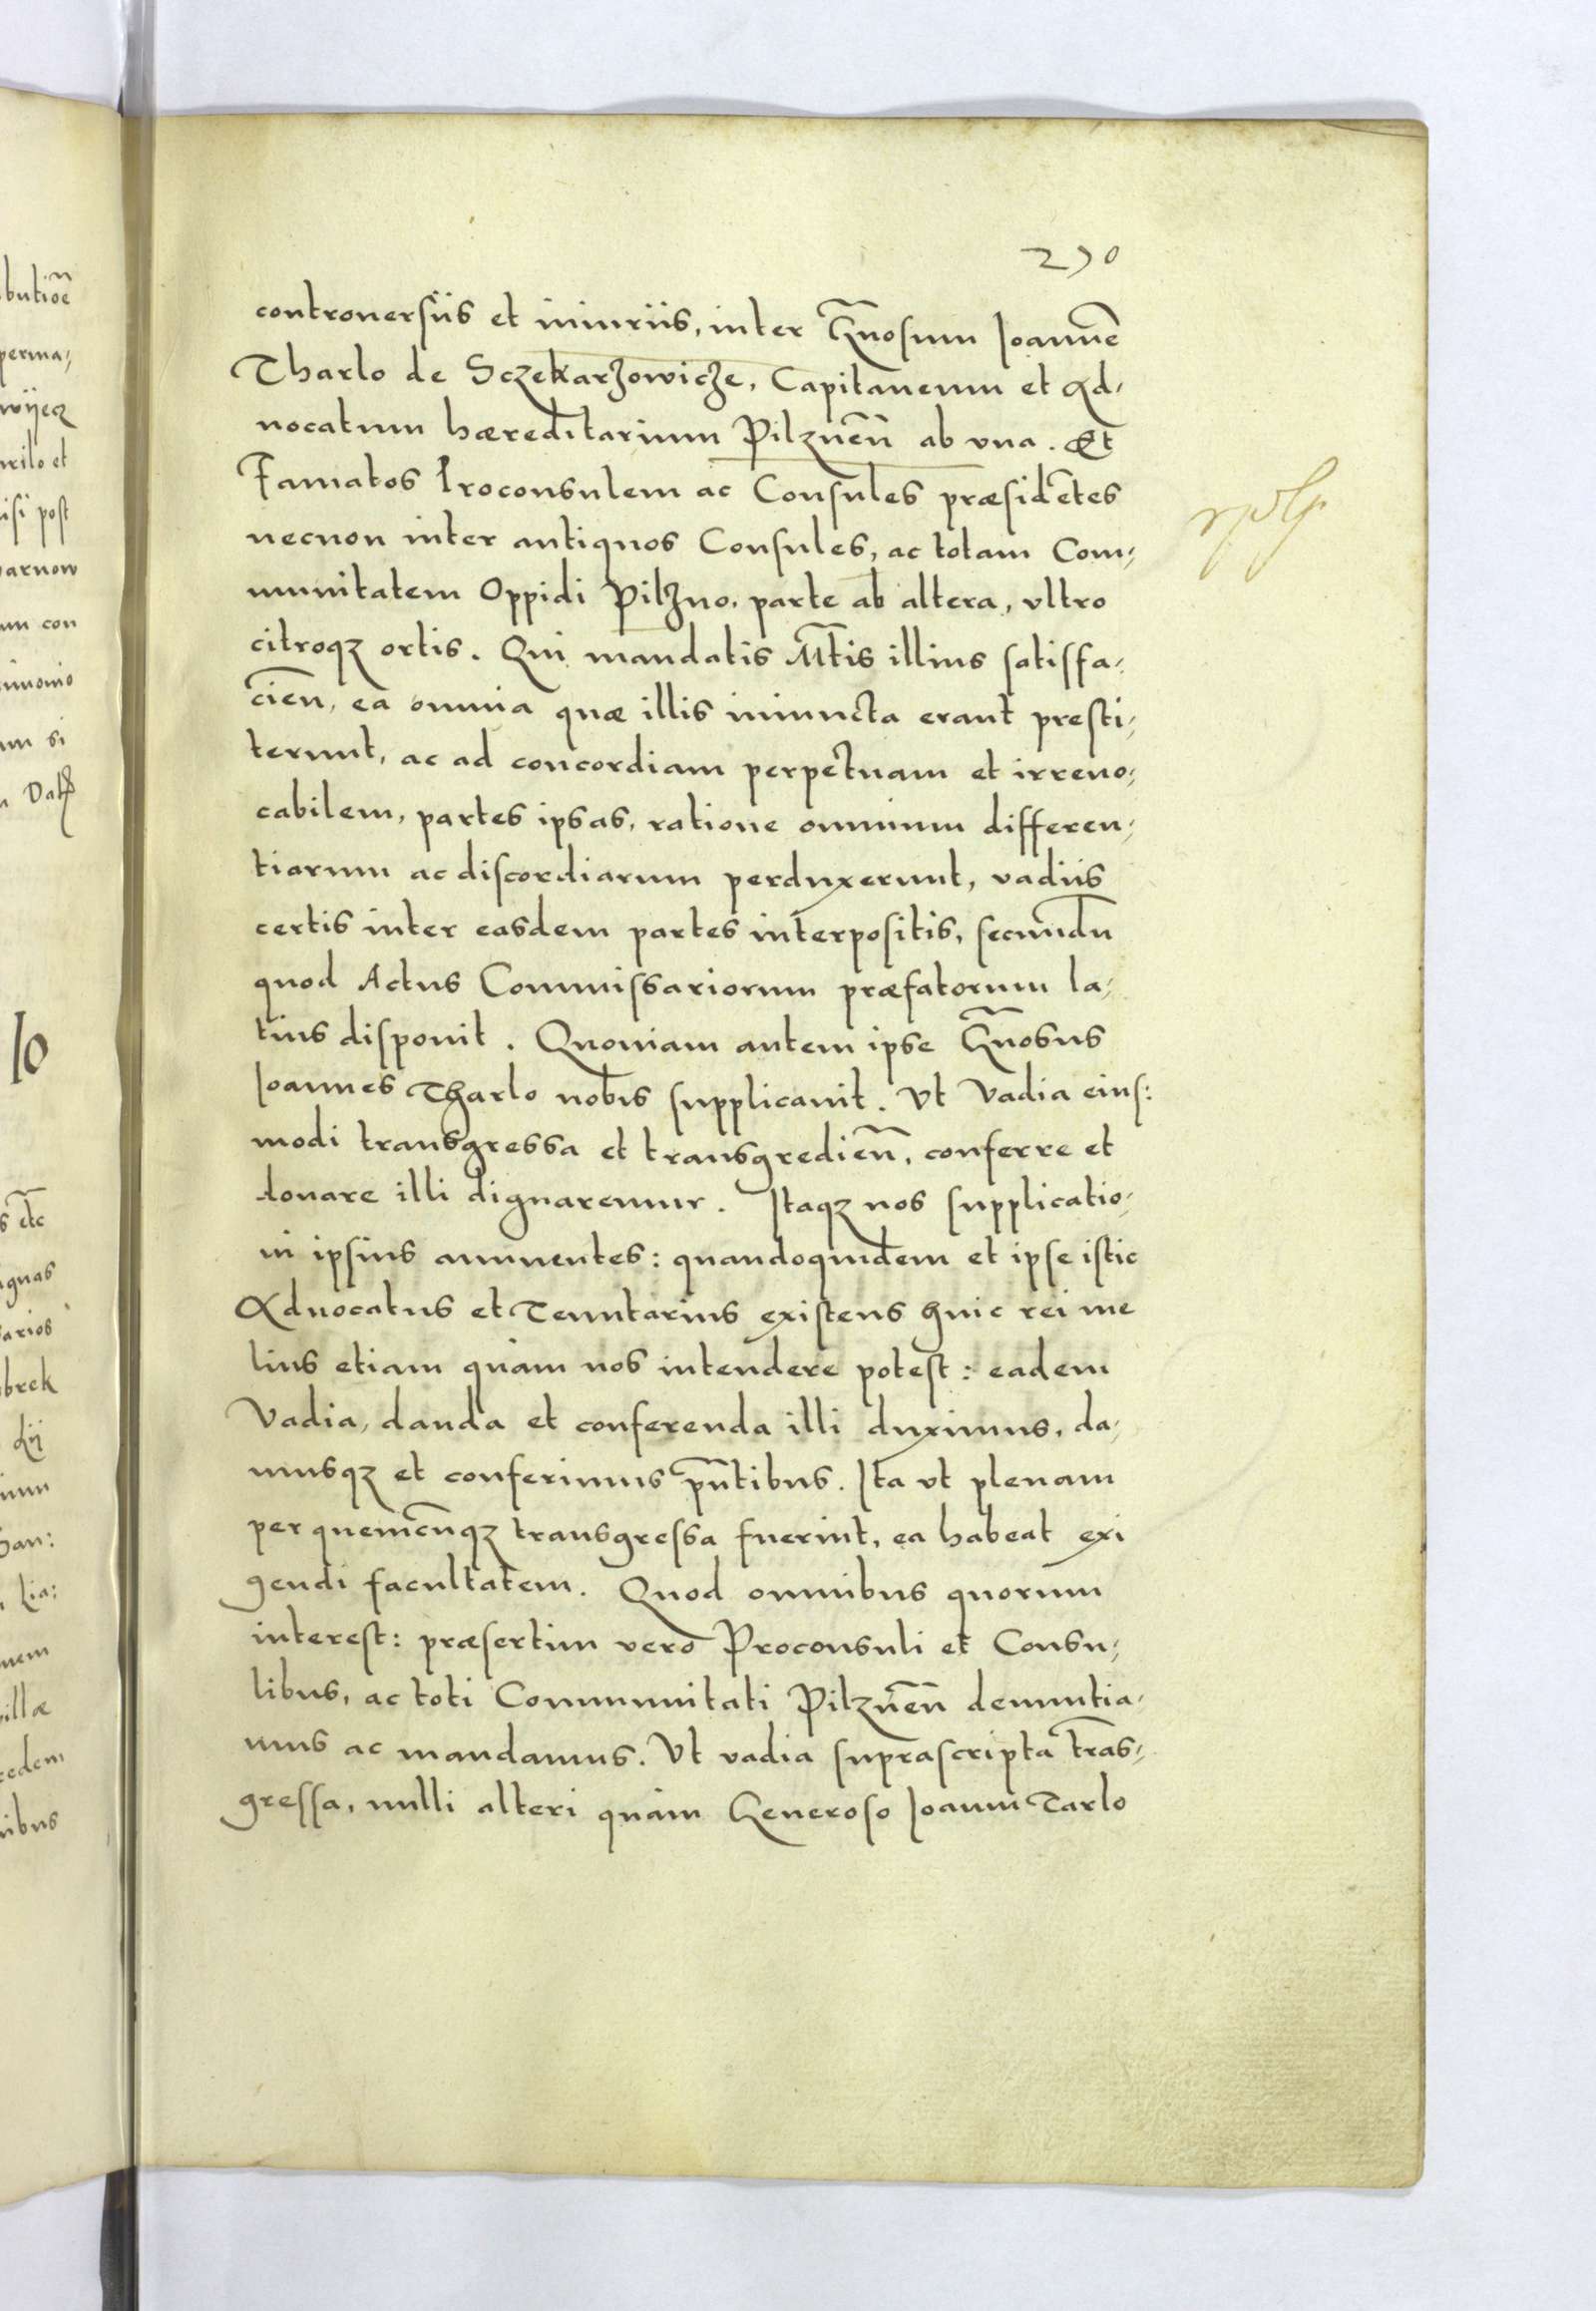 270
controuersiis et iniuriis, inter G̃nosum Ioannē
Tharlo de Sczekarzowicze, Capitaneum et Ad-
uocatum hæreditarium Pilznēn̄ ab vna. Et
Famatos Proconsulem ac Consules præsidētes
necnon inter antiquos Consules, ac totam Com-
munitatem Oppidi Pilzno, parte ab altera, vltro
citroqꝫ ortis. Qui mandatis M̃tis illius satisfa-
cien̄, ea omnia quæ illis iniuncta erant presti-
terunt, ac ad concordiam perpetuam et irreuo-
cabilem, partes ipsas, ratione omnium differen-
tiarum ac discordiarum perduxerunt, vadiis
certis inter easdem partes interpositis, secundū
quod Actus Commissariorum præfatorum la-
tius disponit. Quoniam autem ipse G̃nosus
Ioannes Tharlo nobis supplicauit. Vt Vadia eius:
modi transgressa et transgredien̄, conferre et
donare illi dignaremur. Itaqꝫ nos supplicatio-
ni ipsius annuentes: quandoquidem et ipse istic
Aduocatus et Tenutarius existens huic rei me
lius etiam quàm nos intendere potest: eadem
Vadia, danda et conferenda illi duximus, da-
musqꝫ et conferimus pn̄tibus. Ita vt plenam
per quemcūqꝫ transgressa fuerint, ea habeat exi
gendi facultatem. Quod omnibus quorum
interest: præsertim vero Proconsuli et Consu-
libus, ac toti Communitati Pilznēn̄ denuntia-
mus ac mandamus. Vt vadia suprascripta trās-
gressa, nulli alteri quàm Generoso Ioanni Tarlo